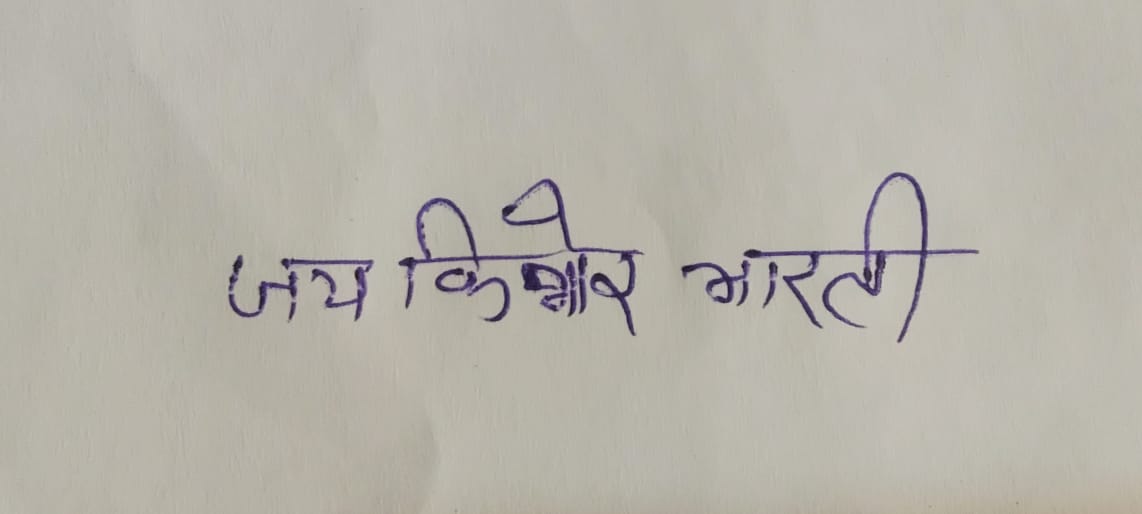 जय किशोर भारती